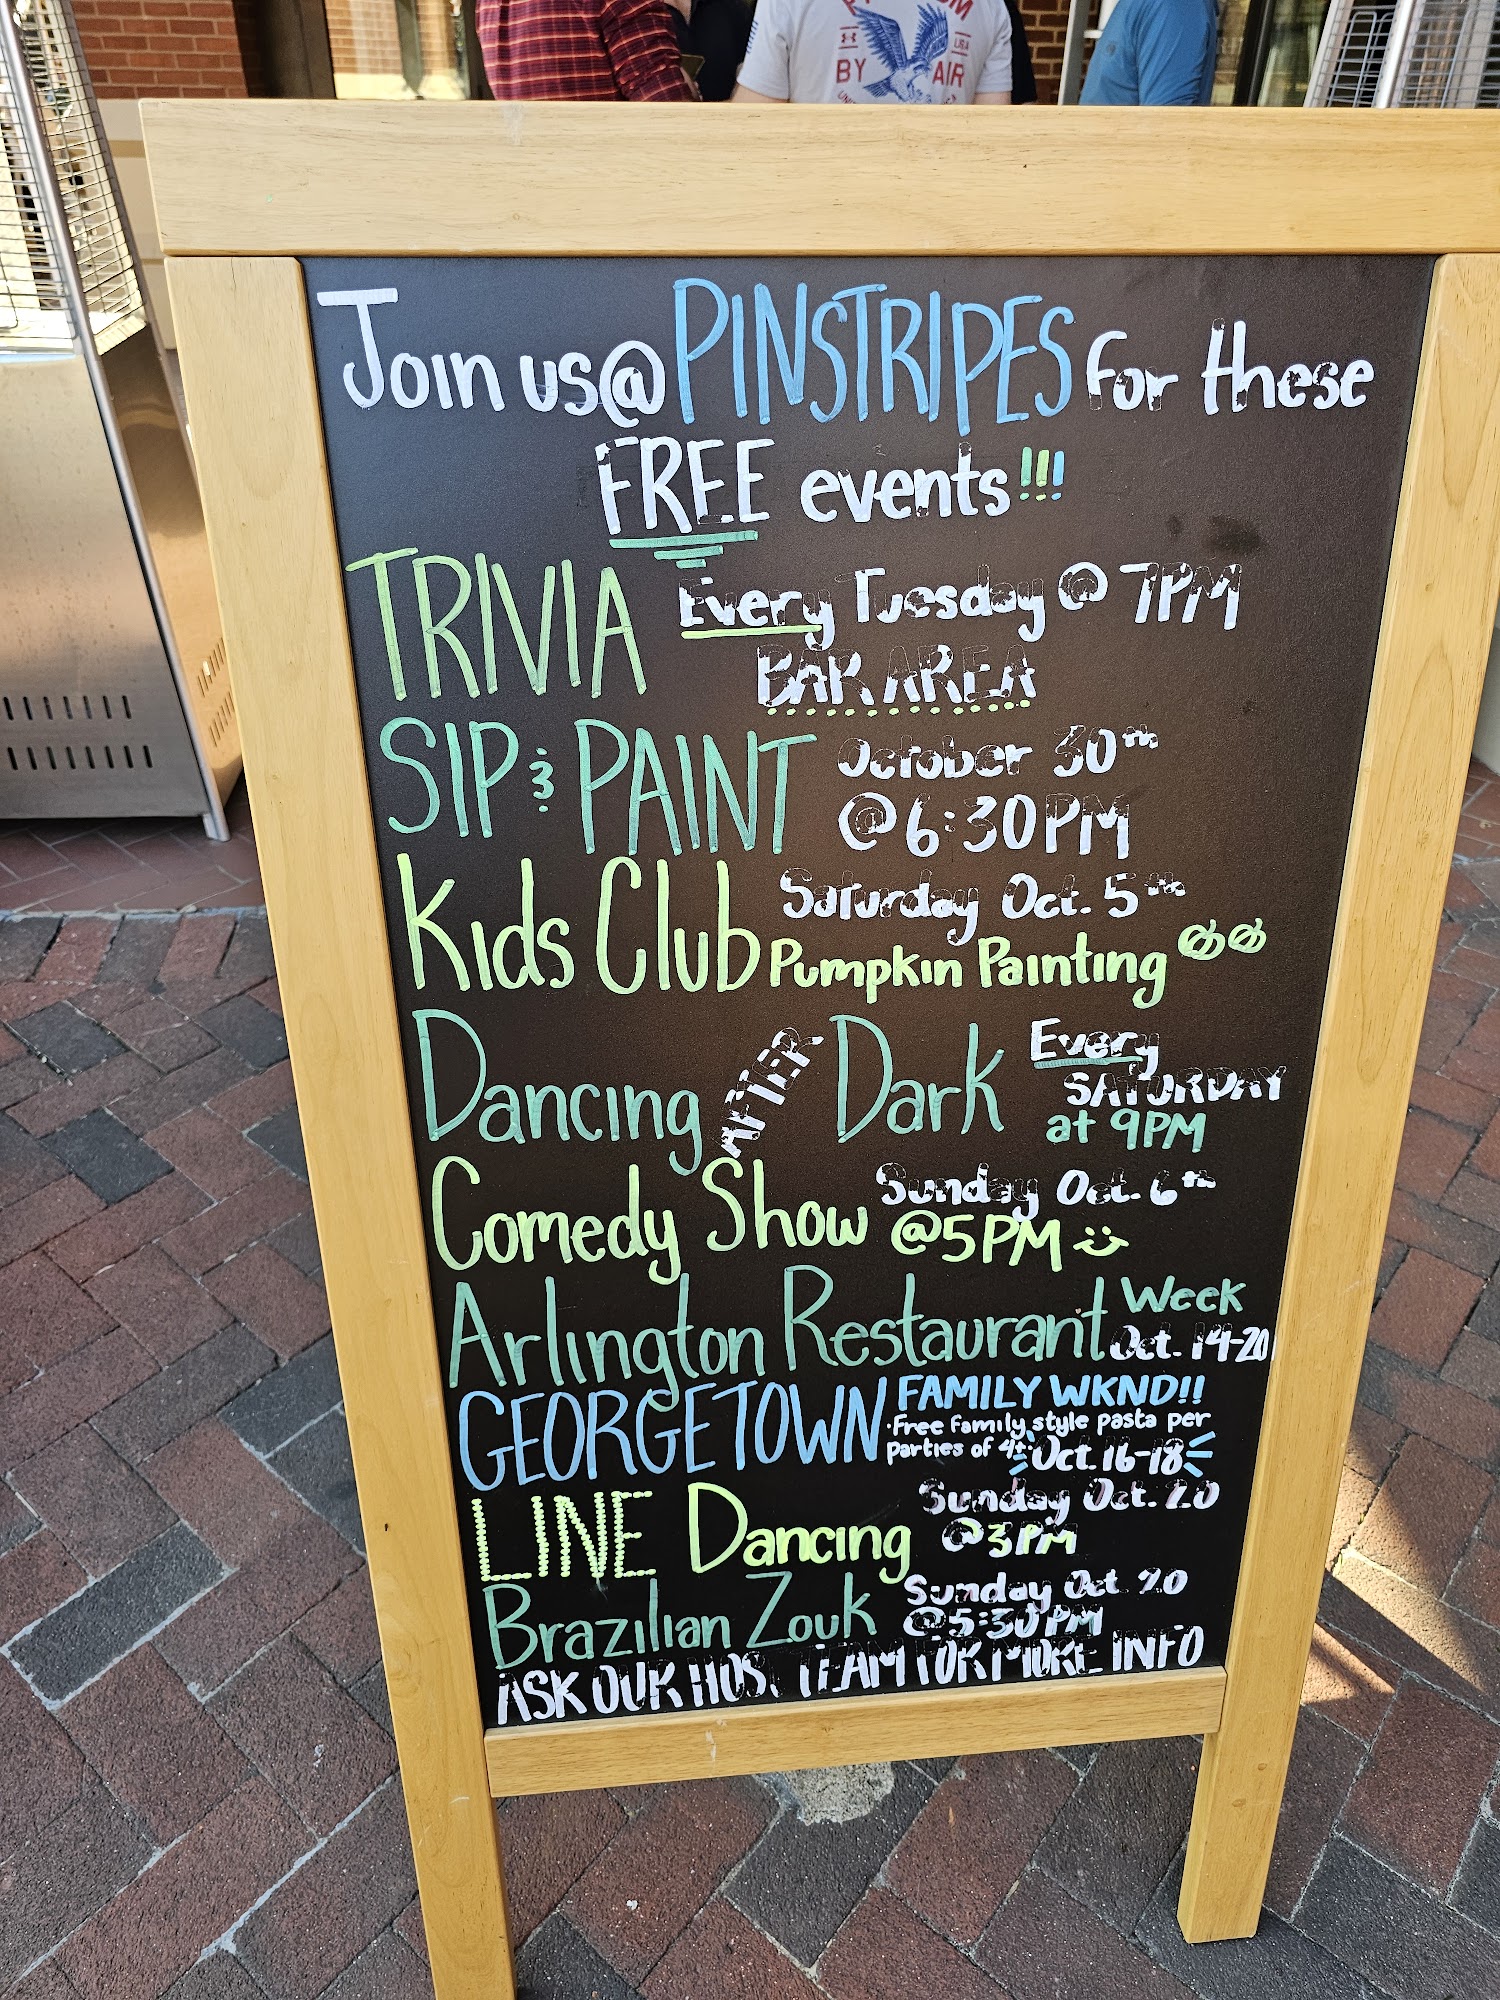 BY AIR
USA
Join us @ PINSTRIPES for these
FREE events!!!
TRIVIA Every Tuesday @ 7PM
BAR AREA
SIP & PAINT October 30th
@ 6:30PM
Kids Club Saturday Oct. 5th
Pumpkin Painting
Dancing AFTER Dark Every
SATURDAY
at 9PM
Comedy Show Sunday Oct. 6th
@5PM
Arlington Restaurant Week
Oct. 14-20
GEORGETOWN FAMILY WKND!!
·Free family style pasta per
parties of 4+· Oct. 16-18
LINE Dancing Sunday Oct. 20
@3PM
Brazilian Zouk Sunday Oct 20
@5:30PM
ASK OUR HOST TEAM FOR MORE INFO